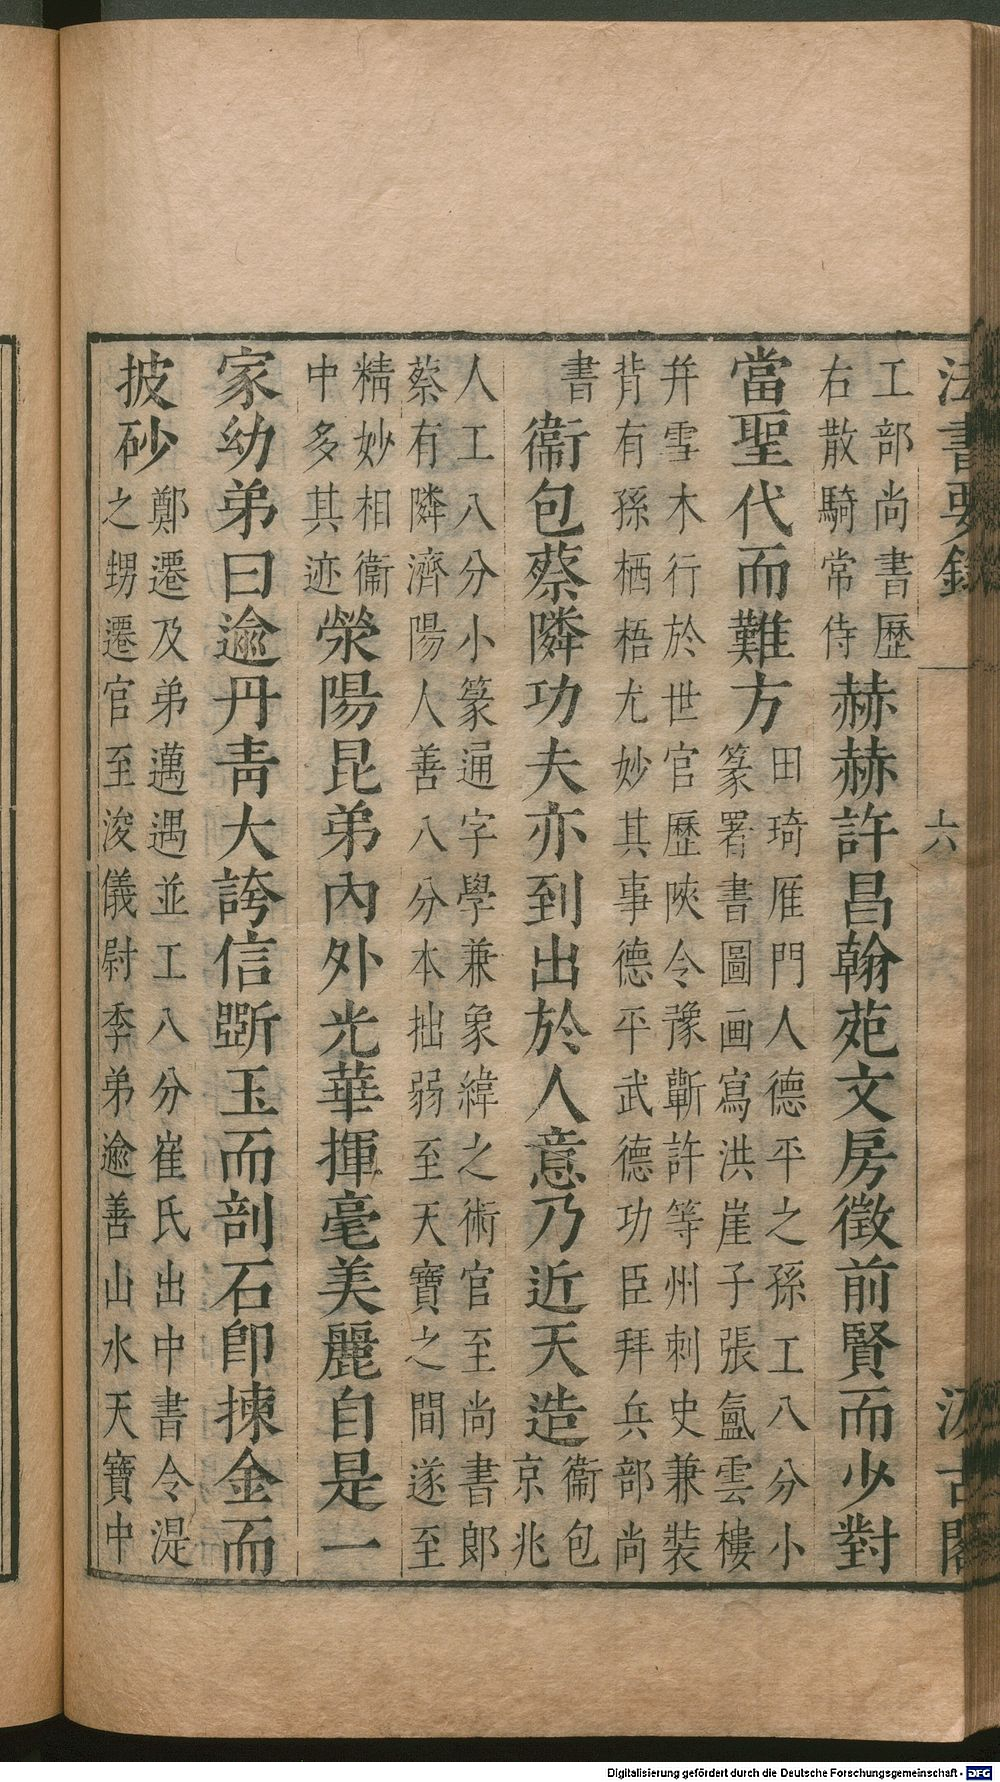 法書要錄 六 汲古閣
工部尚書歷
右散騎常侍
赫赫許昌翰苑文房徵前賢而少對
當聖代而難方
田琦雁門人德平之孫工八分小
篆署書圖画寫洪崖子張氳雲樓
并雪木行於世官歷陝令豫蘄許等州刺史兼裝
背有孫栖梧尤妙其事德平武德功臣拜兵部尚
書
衞包蔡隣功夫亦到出於人意乃近天造
衞包
京兆
人工八分小篆通字學兼象緯之術官至尚書郎
蔡有隣濟陽人善八分本拙弱至天寶之間遂至
精妙相衞
中多其迹
滎陽昆弟內外光華揮毫美麗自是一
家幼弟曰逾丹青大誇信斲玉而剖石卽揀金而
披砂
鄭遷及弟邁遇並工八分崔氏出中書令湜
之甥遷官至浚儀尉季弟逾善山水天寶中
Digitalisierung gefördert durch die Deutsche Forschungsgemeinschaft - DFG